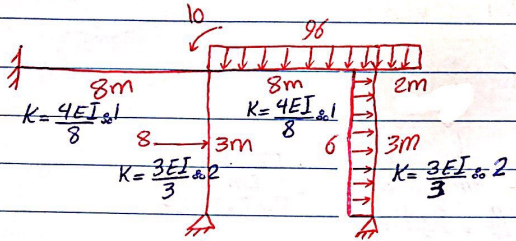 10
96
8m
8m
2m
K = 4EI/8 ∝ 1
K = 4EI/8 ∝ 1
8
3m
6
3m
K = 3EI/3 ∝ 2
K = 3EI/3 ∝ 2